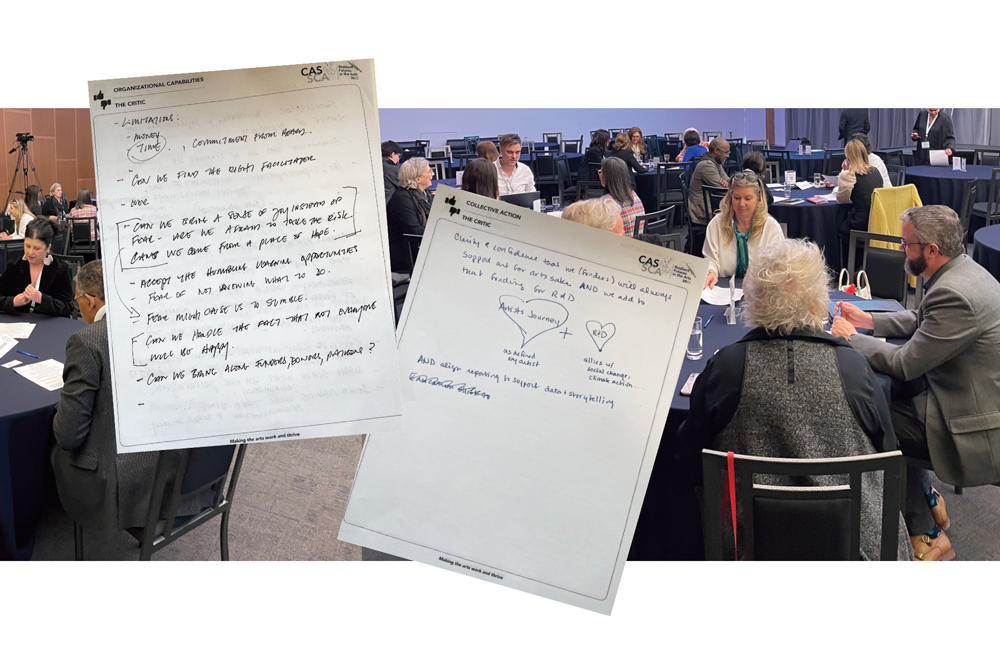 ORGANIZATIONAL CAPABILITIES
THE CRITIC
CAS
SCA
Resilient
Futures
in the Arts
- LIMITATIONS:
- MONEY
TIME. , COMMITMENT FROM BOARDS.
- CAN WE FIND THE RIGHT FACILITATOR
- CAN WE BRING A SENSE OF JOY INSTEAD OF
FEAR - ARE WE AFRAID TO TAKE THE RISK.
CAN WE COME FROM A PLACE OF HOPE.
- ACCEPT THE HUMBLING LEARNING OPPORTUNITIES
- FEAR OF NOT KNOWING WHAT TO DO.
FEAR MIGHT CAUSE US TO STUMBLE.
- CAN WE HANDLE THE FACT THAT NOT EVERYONE
WILL BE HAPPY.
- CAN WE BRING ALONG FUNDERS, DONORS, PATRONS?
-
Making the arts work and thrive
COLLECTIVE ACTION
THE CRITIC
CAS
SCA
Resilient
Futures
in the Arts
Clarity & confidence that we (funders) will always
support art for arts sake AND we add to
that funding for R+D
Artists Journey
+
R+D
as defined
by artist
allies w/
social change,
climate action...
AND align reporting to support data + storytelling
Making the arts work and thrive